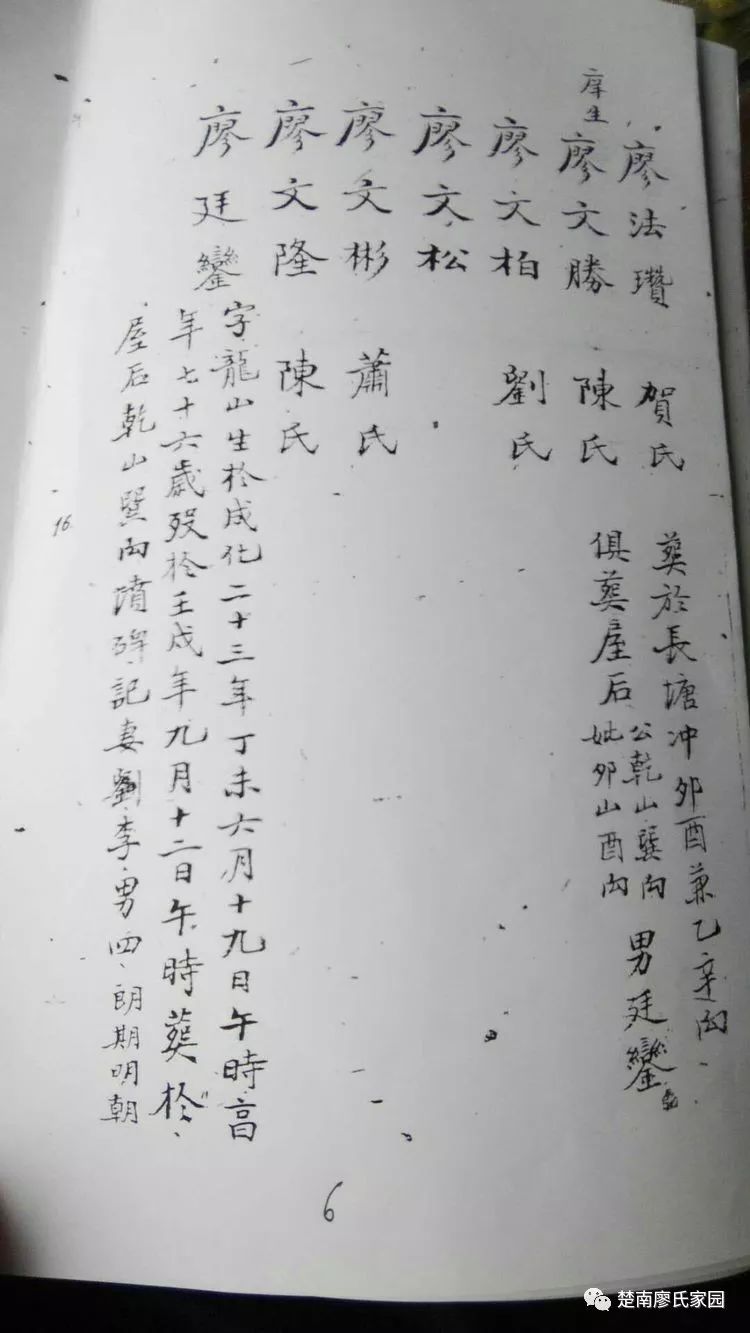 廖法瓚 賀氏 葬於長塘冲卯酉兼乙辛向
庠生 廖文勝 陳氏 俱葬屋后 公乾山巽向 妣卯山酉向 男廷鑾
廖文柏 劉氏
廖文松
廖文彬 蕭氏
廖文隆 陳氏
廖廷鑾 字龍山生於成化二十三年丁未六月十九日午時高
年七十六歲歿於壬戌年九月十二日午時葬於
屋后乾山巽向墳碑記妻劉李男四朗期明朝
16
6
楚南廖氏家园